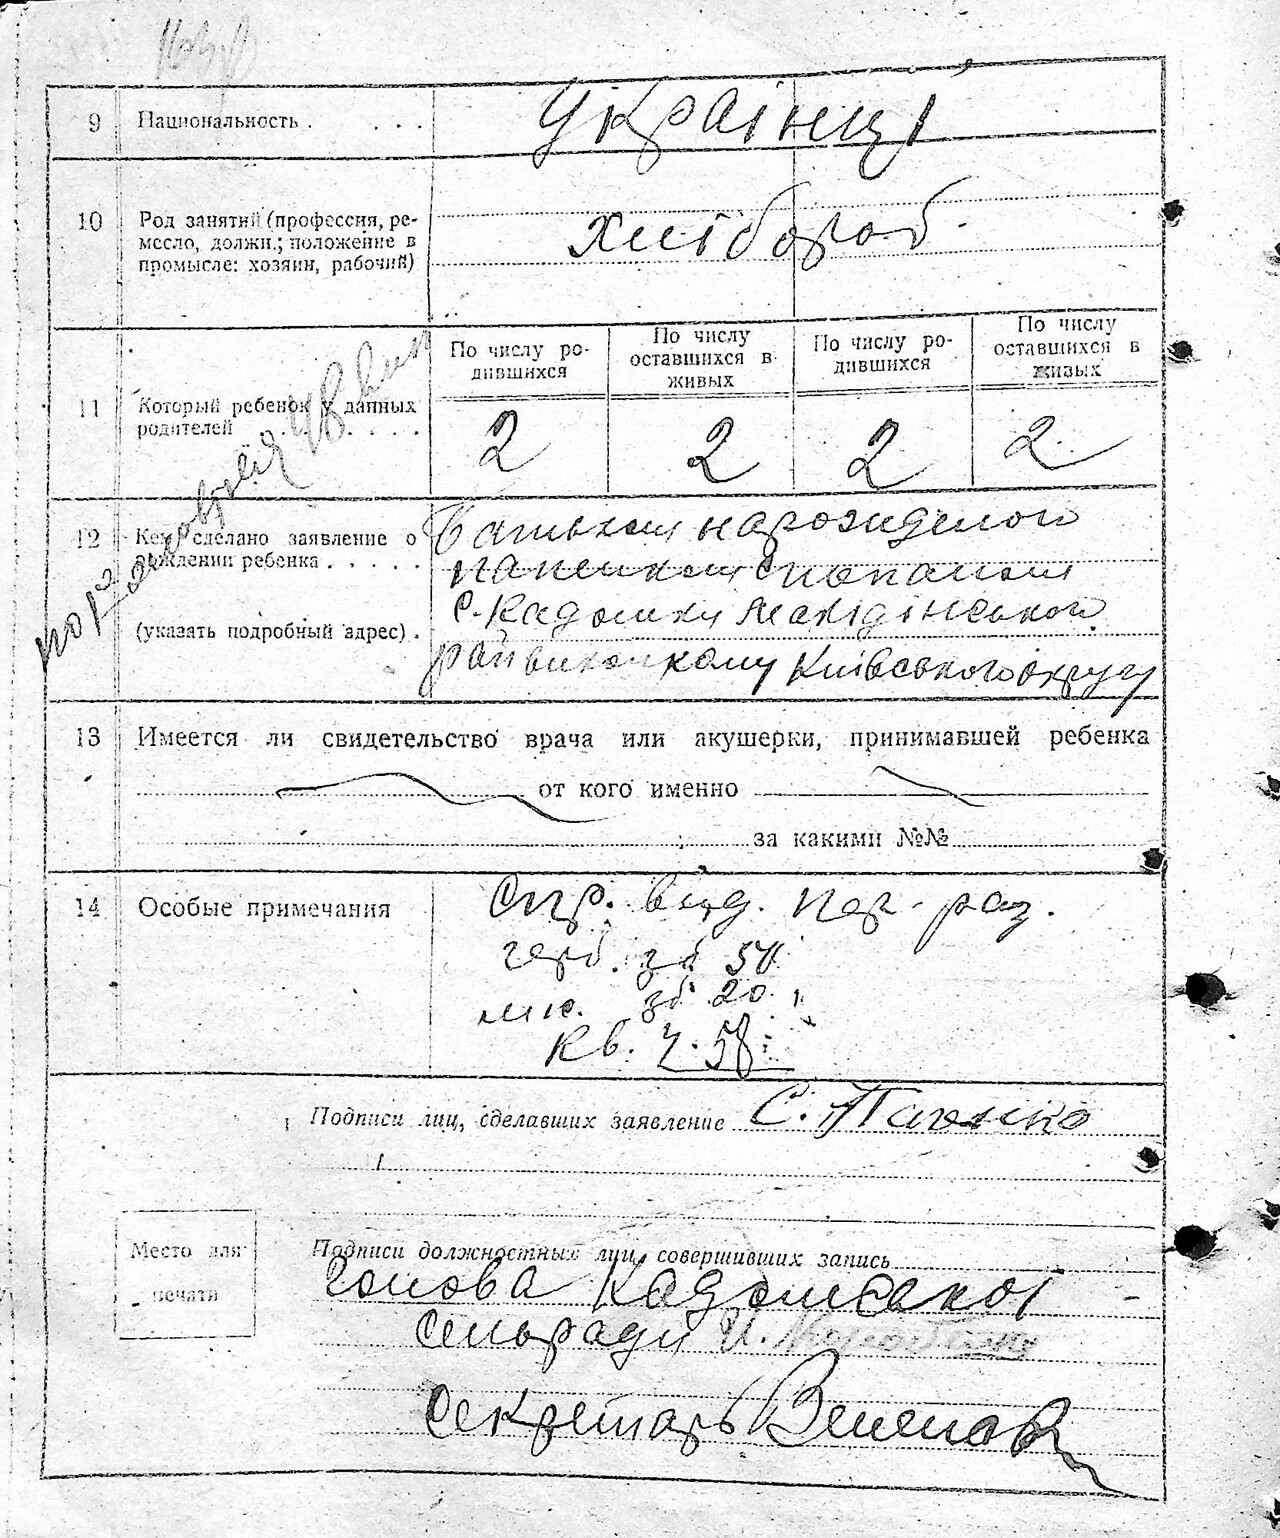 9 Национальность . . . .
Українці
10 Род занятий (профессия, ре-
месло, должн.; положение в
промысле: хозяин, рабочий)
хлібороб.
11 Который ребенок у данных
родителей . . . . . .
По числу ро-
дившихся
По числу
оставшихся в
живых
По числу ро-
дившихся
По числу
оставшихся в
живых
2 2 2 2
12 Кем сделано заявление о
рождении ребенка . . . . .
(указать подробный адрес) .
Батьком народженого
Степаном
с. Кадомки
райвиконкому Київського округу
13 Имеется ли свидетельство врача или акушерки, принимавшей ребенка
от кого именно
за какими №№
14 Особые примечания
Спр. вид. пер. раз.
герб. зб 50
зб 20 "
кв. ч. 58
Подписи лиц, сделавших заявление С.
Место для
печати
Подписи должностных лиц, совершивших запись
Голова Кадомської
сельради И.
Секретарь